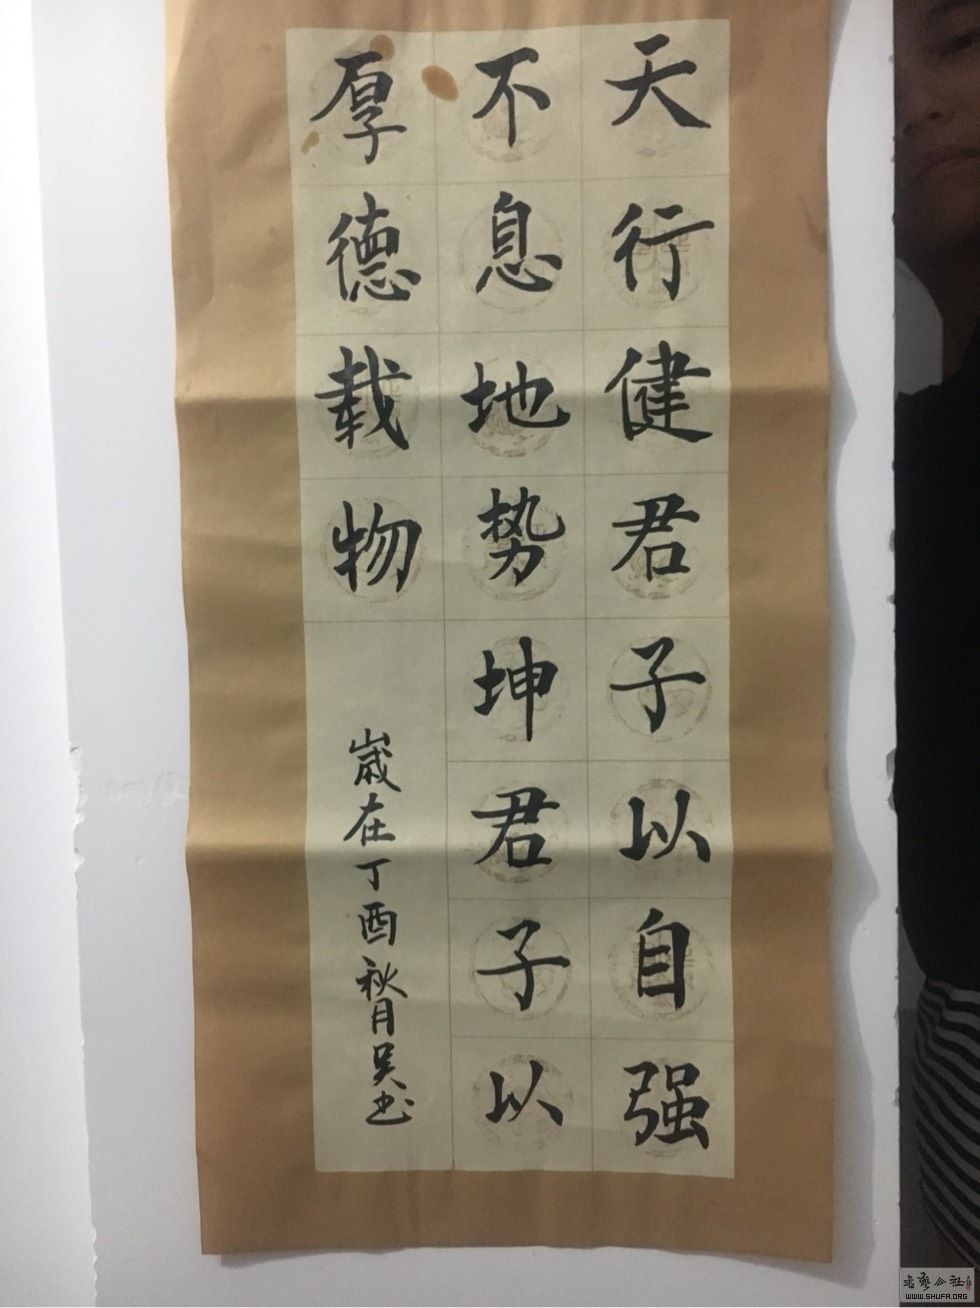 天行健君子以自强
不息地势坤君子以
厚德载物
岁在丁酉秋月吴书
书艺公社
WWW.SHUFA.ORG